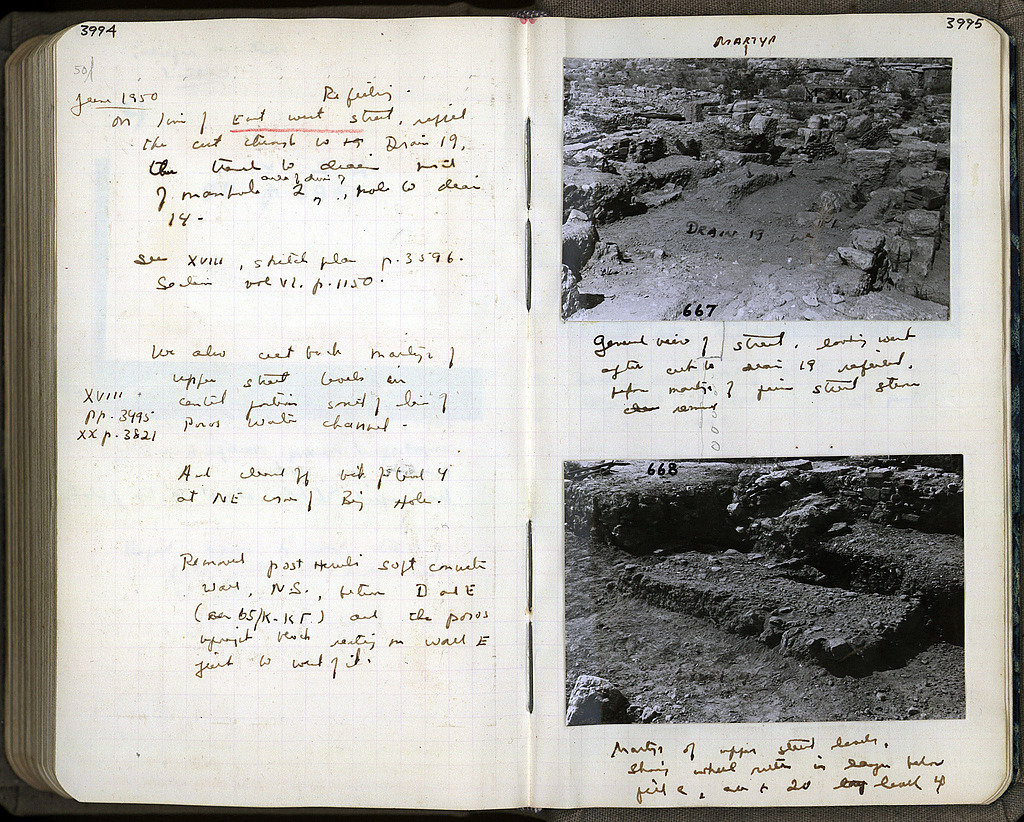 3994
50/
June 1950
Refilling.
on line of East west street, refill
the cut through to Drain 19,
the trench to drain
of manhole 2, hole to drain
14 -
See XVIII, sketch plan p. 3596.
vol VI. p. 1150.
We also cut back martyr of
upper street levels in
central portion south of line of
poros water channel -
XVIII
pp. 3495
XX p. 3821
And cleaned off bit of level 4
at NE corner of Big Hole.
Removed post Heruli soft concrete
wall, N.S., between D and E
(65/K-KΓ) and the poros
upright block resting on wall E
just to west of it.
3995
MARTYR
DRAIN 19
667
General view of street, looking west
after cut to drain 19 refilled,
before martyr of street
668
Martyr of upper street levels,
wheel ruts in layer below
level 4